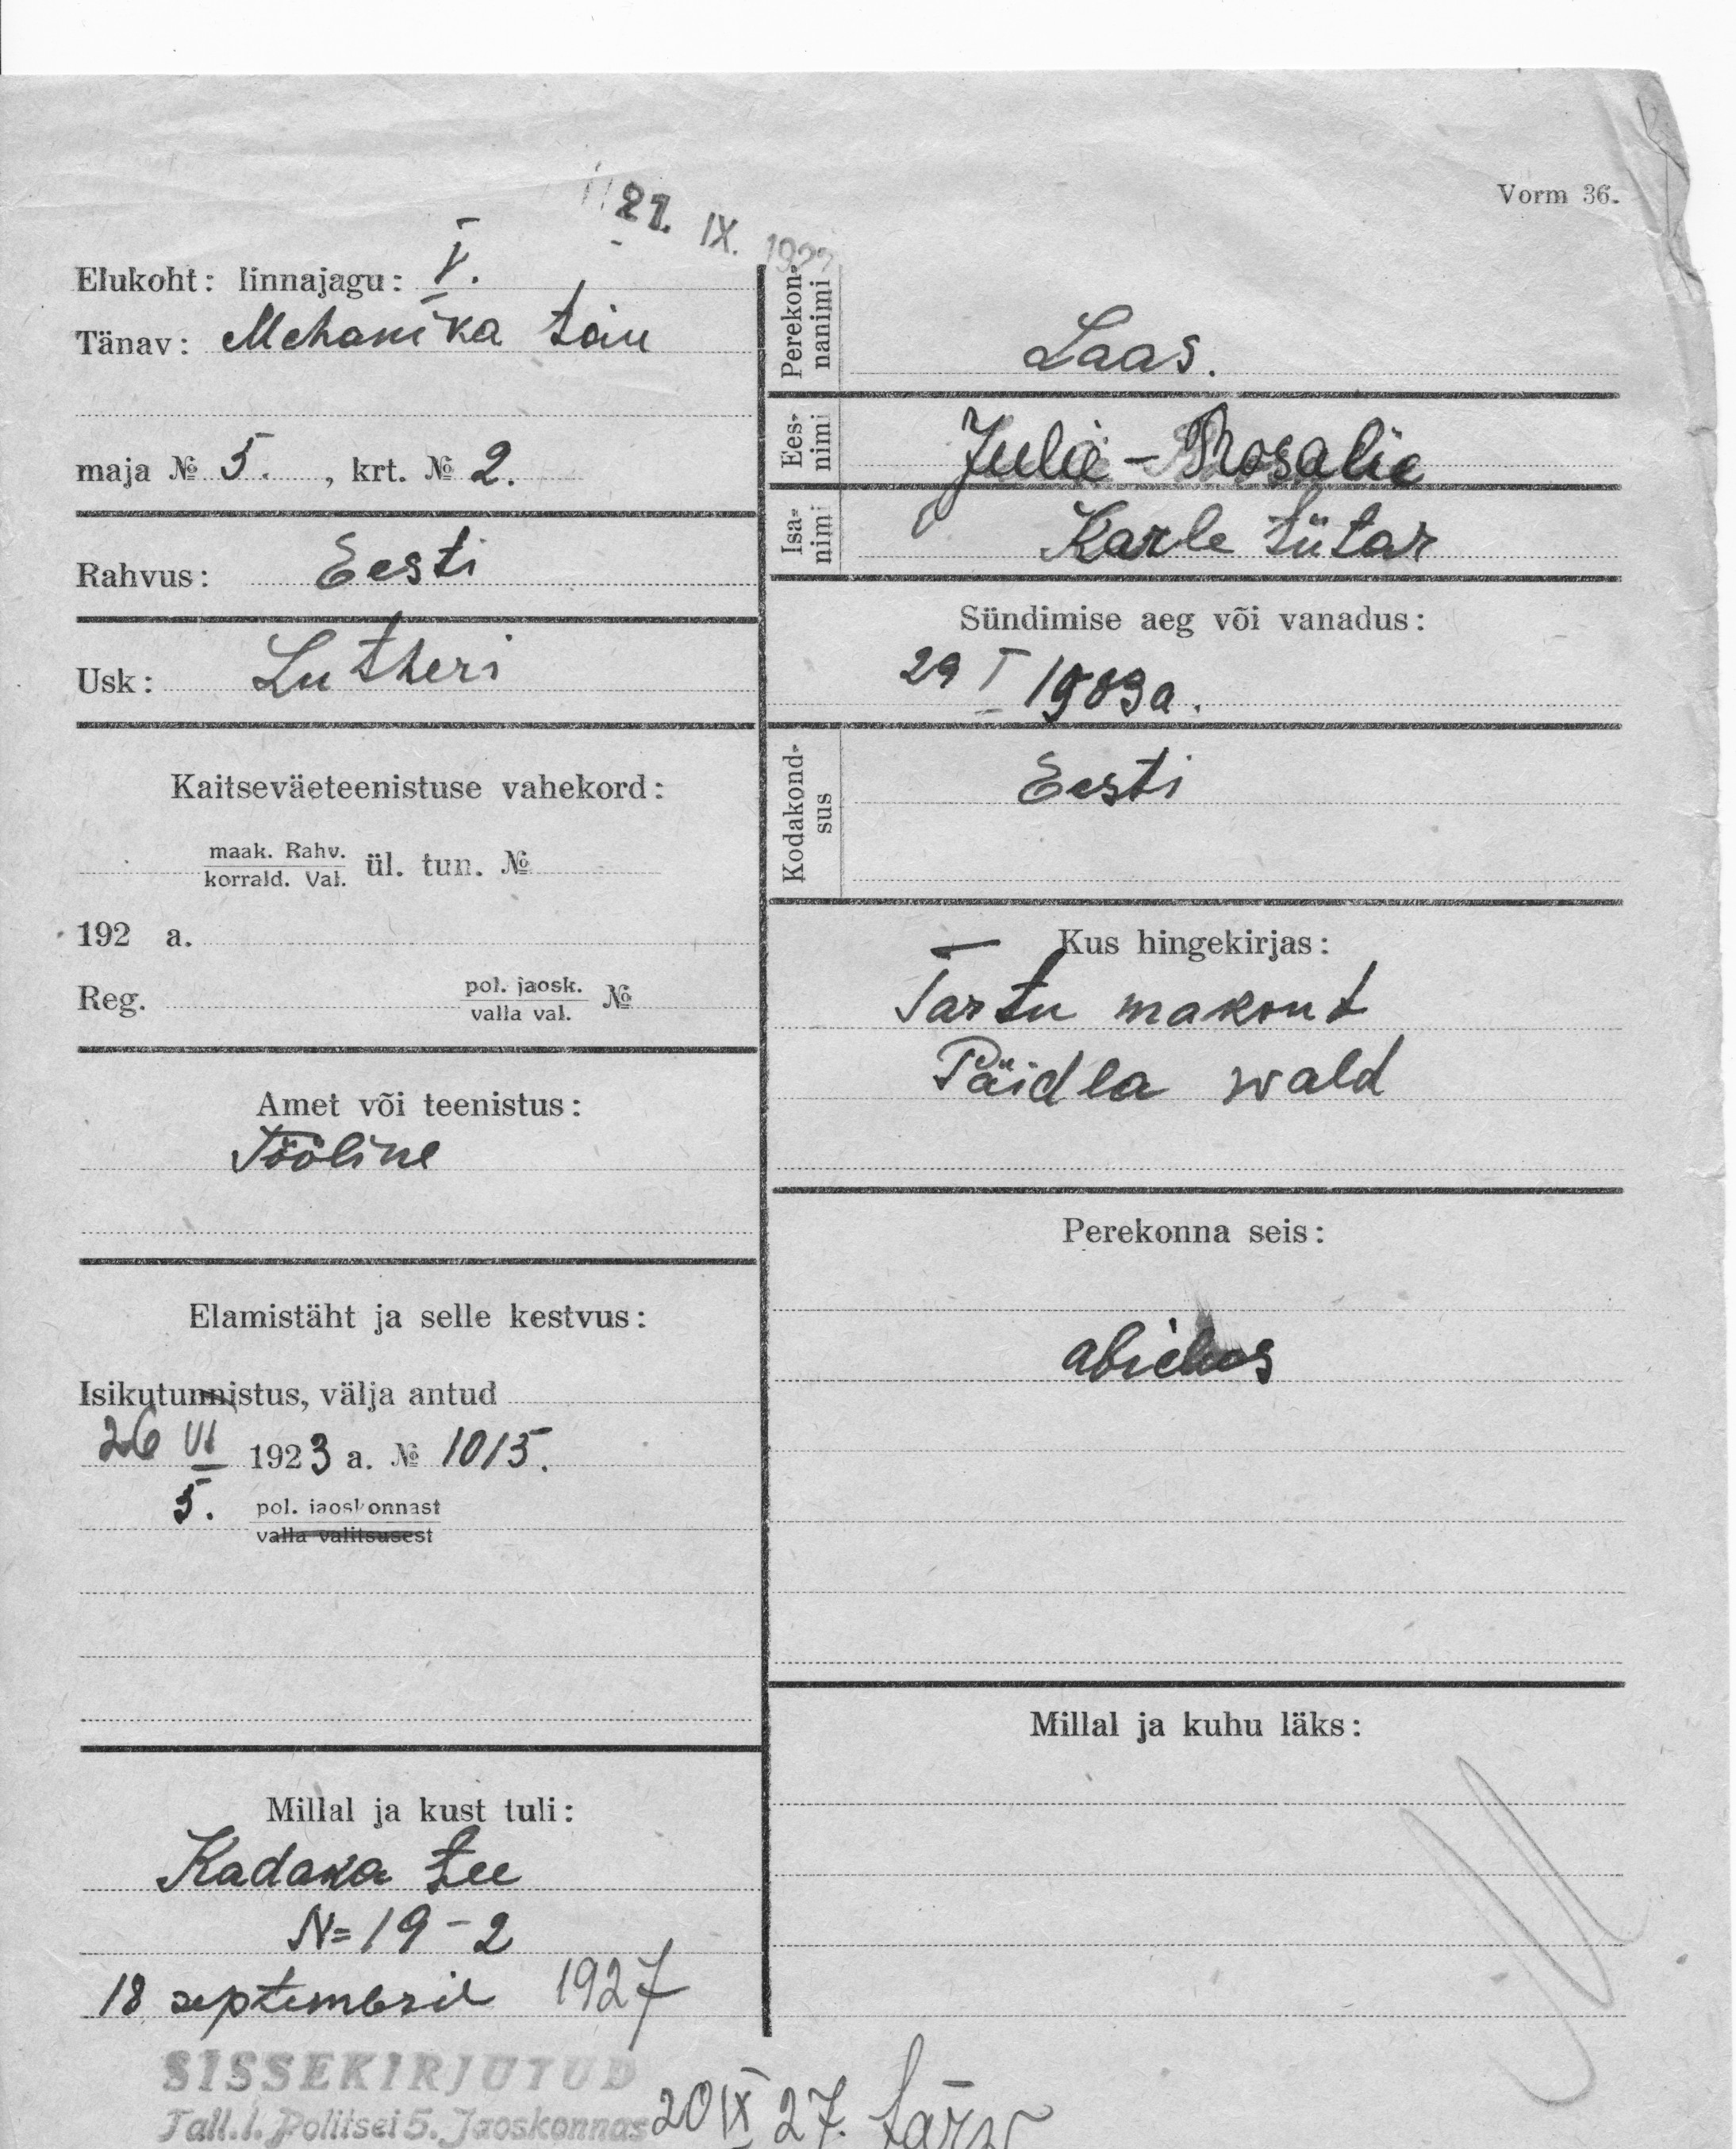 Vorm 36.
21. IX. 1927
Elukoht: linnajagu: V.
Tänav: Mehanika tän
maja № 5. , krt. № 2.
Rahvus: Eesti
Usk: Lutheri
Kaitseväeteenistuse vahekord:
maak. Rahv.
korrald. Val. ül. tun. №
192 a.
Reg. pol. jaosk. №
valla val.
Amet või teenistus:
Tööline
Elamistäht ja selle kestvus:
Isikutunnistus, välja antud
26 VI 1923 a. № 1015.
5. pol. jaoskonnast
valla valitsusest
Millal ja kust tuli:
Kadaka tee
N= 19-2
18 septembril 1927
Perekonnanimi
Laas.
Eesnimi
Julie-Rosalie
Isanimi
Karle tütar
Sündimise aeg või vanadus:
29 I 1903a.
Kodakondsus
Eesti
Kus hingekirjas:
Tartu makont
Päidla wald
Perekonna seis:
abielus
Millal ja kuhu läks:
SISSEKIRJUTUD
Tall. l. Politsei 5. Jaoskonnas 20 IX 27. Lärw